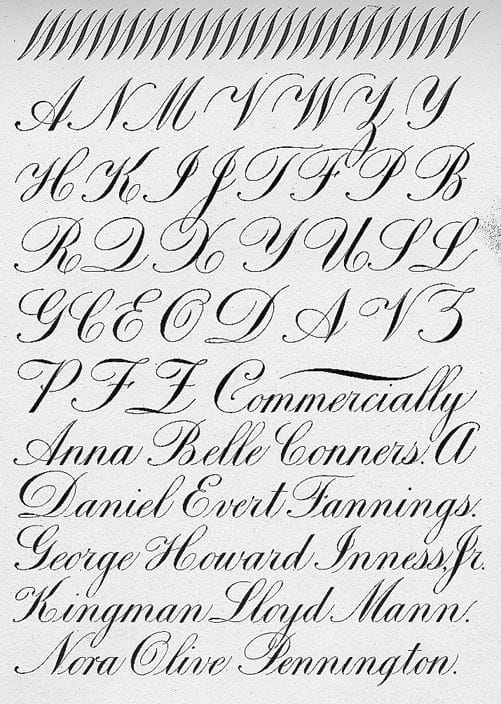 A N M V W Z Y
H K I J T F P B
R Q X Y U S L
G C E O D A V Z
P F Z Commercially
Anna Belle Conners. A
Daniel Evert Fannings.
George Howard Inness, Jr.
Kingman Lloyd Mann.
Nora Olive Pennington.